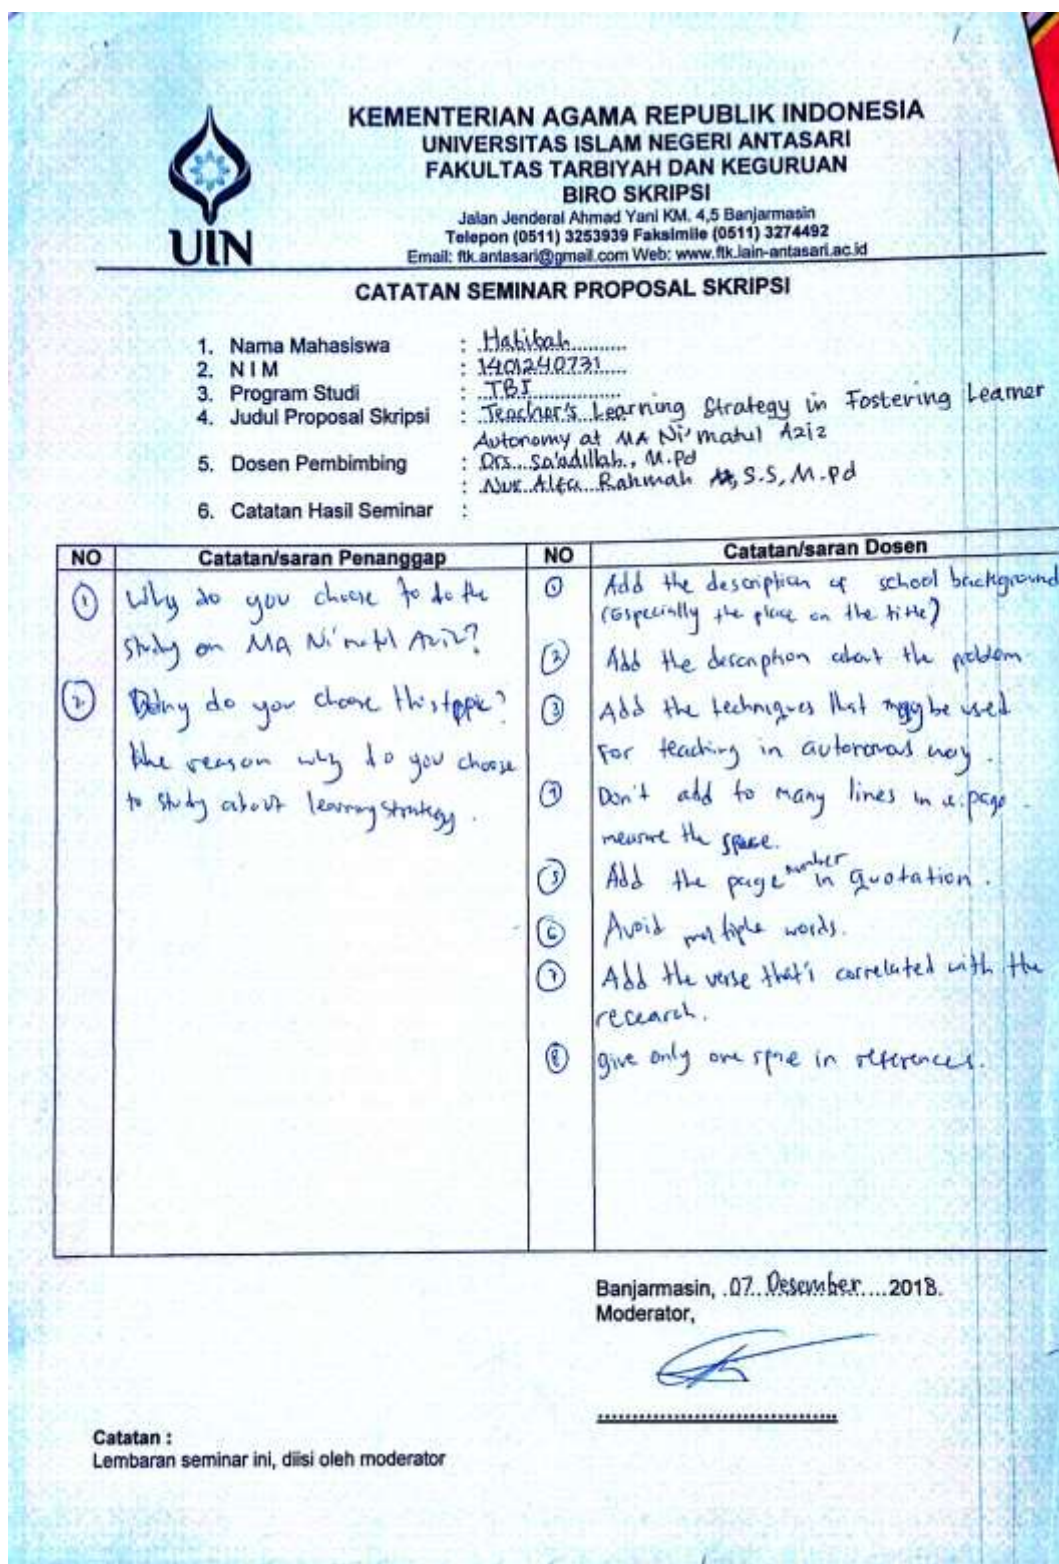 KEMENTERIAN AGAMA REPUBLIK INDONESIA
UNIVERSITAS ISLAM NEGERI ANTASARI
FAKULTAS TARBIYAH DAN KEGURUAN
BIRO SKRIPSI
Jalan Jenderal Ahmad Yani KM. 4,5 Banjarmasin
Telepon (0511) 3253939 Faksimile (0511) 3274492
Email: ftk.antasari@gmail.com Web: www.ftk.iain-antasari.ac.id
UIN
CATATAN SEMINAR PROPOSAL SKRIPSI
1. Nama Mahasiswa : Habibah
2. N I M : 1401240731
3. Program Studi : TBI
4. Judul Proposal Skripsi : Teacher's Learning Strategy in Fostering Learner
Autonomy at MA Ni'matul Aziz
5. Dosen Pembimbing : Drs. Sa'adillah, M.Pd
: Nur Alfa Rahmah S.S, M.Pd
6. Catatan Hasil Seminar :
NO Catatan/saran Penanggap
1 Why do you choose to do the
study on MA Ni'matul Aziz?
2 Why do you choose this topic?
the reason why do you choose
to study about learning strategy.
NO Catatan/saran Dosen
1 Add the description of school background
(Especially the place on the title)
2 Add the description about the problem
3 Add the techniques that may be used
For teaching in autonomous way.
4 Don't add to many lines in a page.
measure the space.
5 Add the page number in quotation.
6 Avoid multiple words.
7 Add the verse that's correlated with the
research.
8 give only one space in references.
Banjarmasin, 07 Desember 2018.
Moderator,
Catatan :
Lembaran seminar ini, diisi oleh moderator